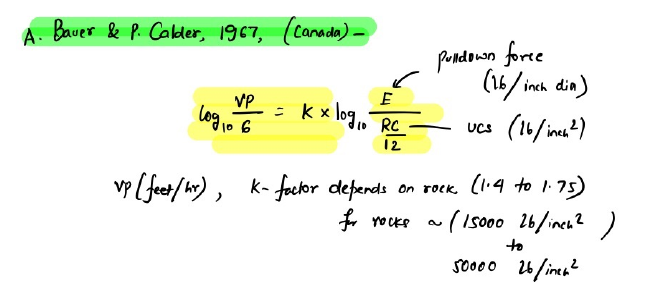 A. Bauer & P. Calder, 1967, (Canada) –
pulldown force
(lb/inch dia)
log₁₀ VP/6 = K × log₁₀ E/(RC/12)
UCS (lb/inch²)
VP (feet/hr), K- factor depends on rock (1.4 to 1.75)
for rocks ~ (15000 lb/inch²)
to
50000 lb/inch²